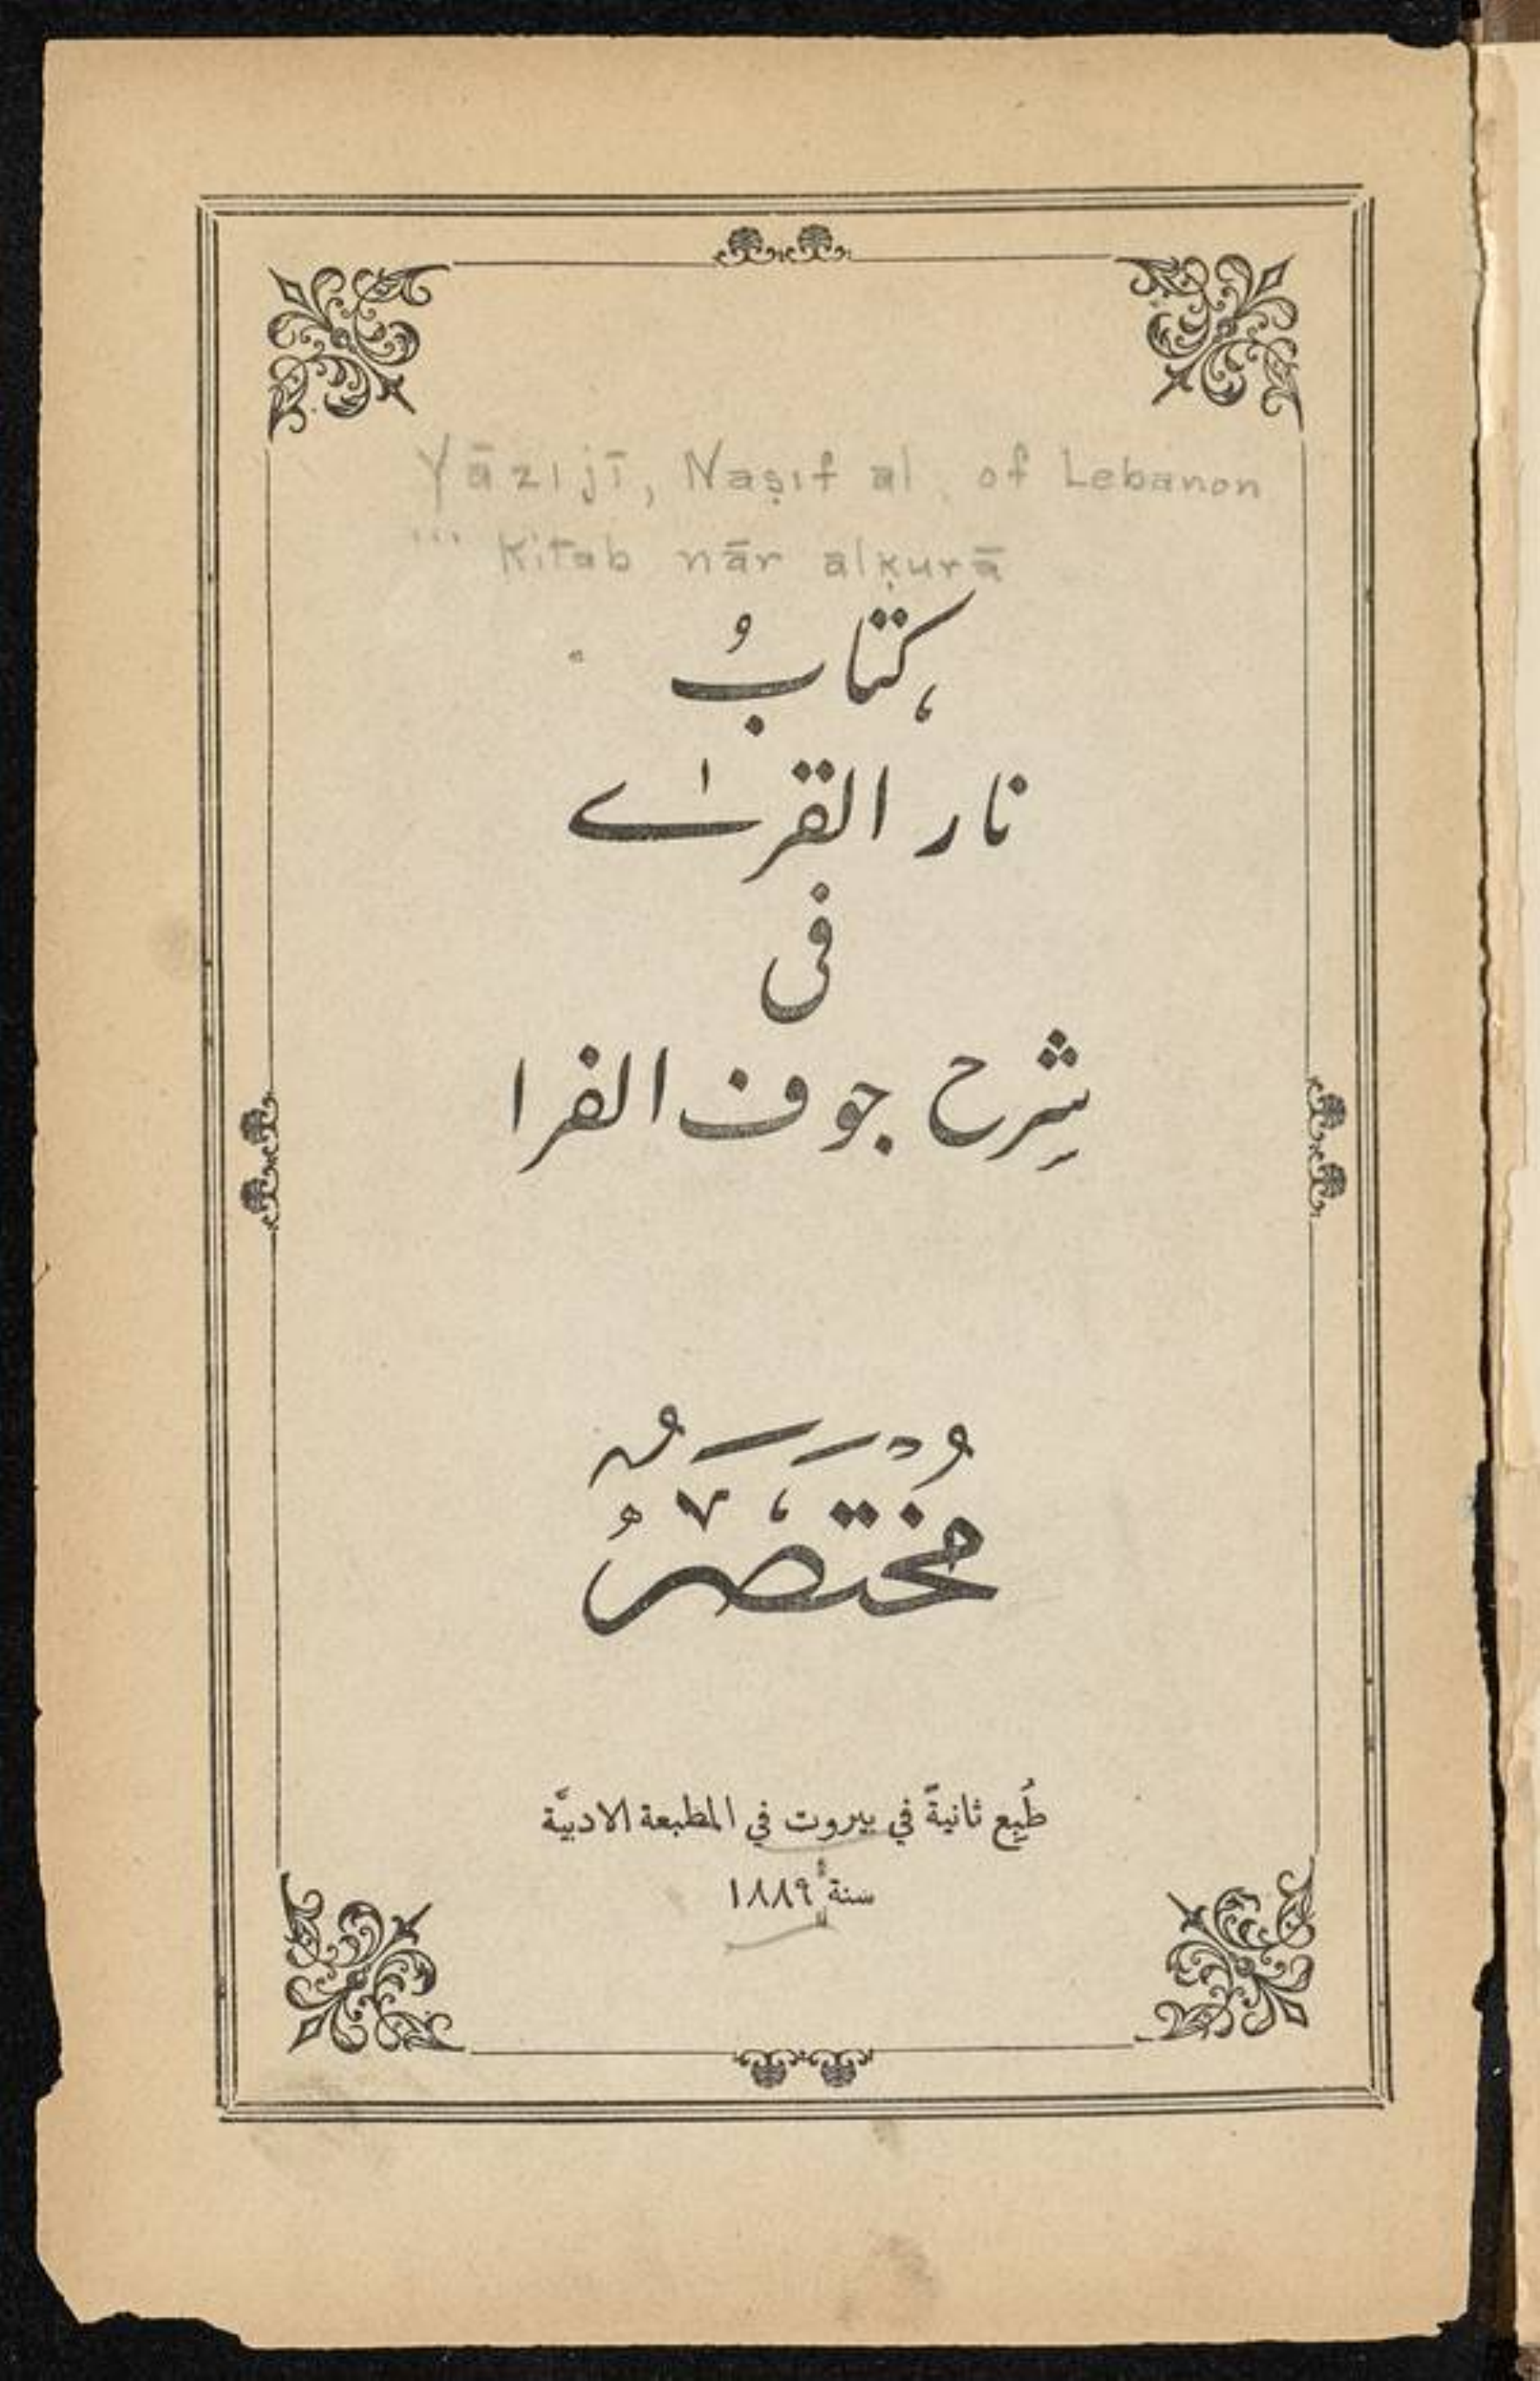 Yāzijī, Naṣıf al, of Lebanon
... Kitab nār alḳurā
كتابُ
نار القرٰے
فى
شرح جوف الفرا
مُخْتَصَرُ
طُبِع ثانيةً في بيروت في المطبعة الادبيَّة
سنة ١٨٨٩